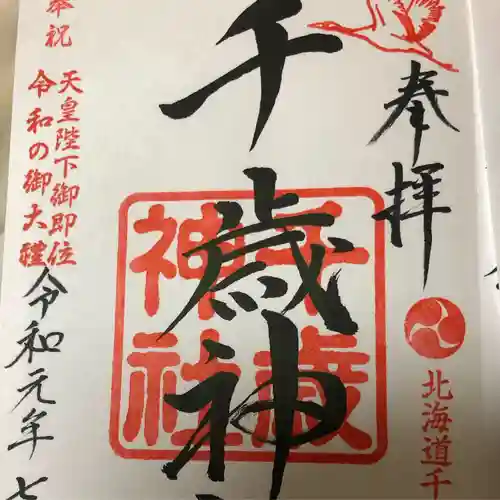 奉拝
北海道千
千歳神
千歳
神社
奉祝
天皇陛下御即位
令和の御大礼
令和元年七